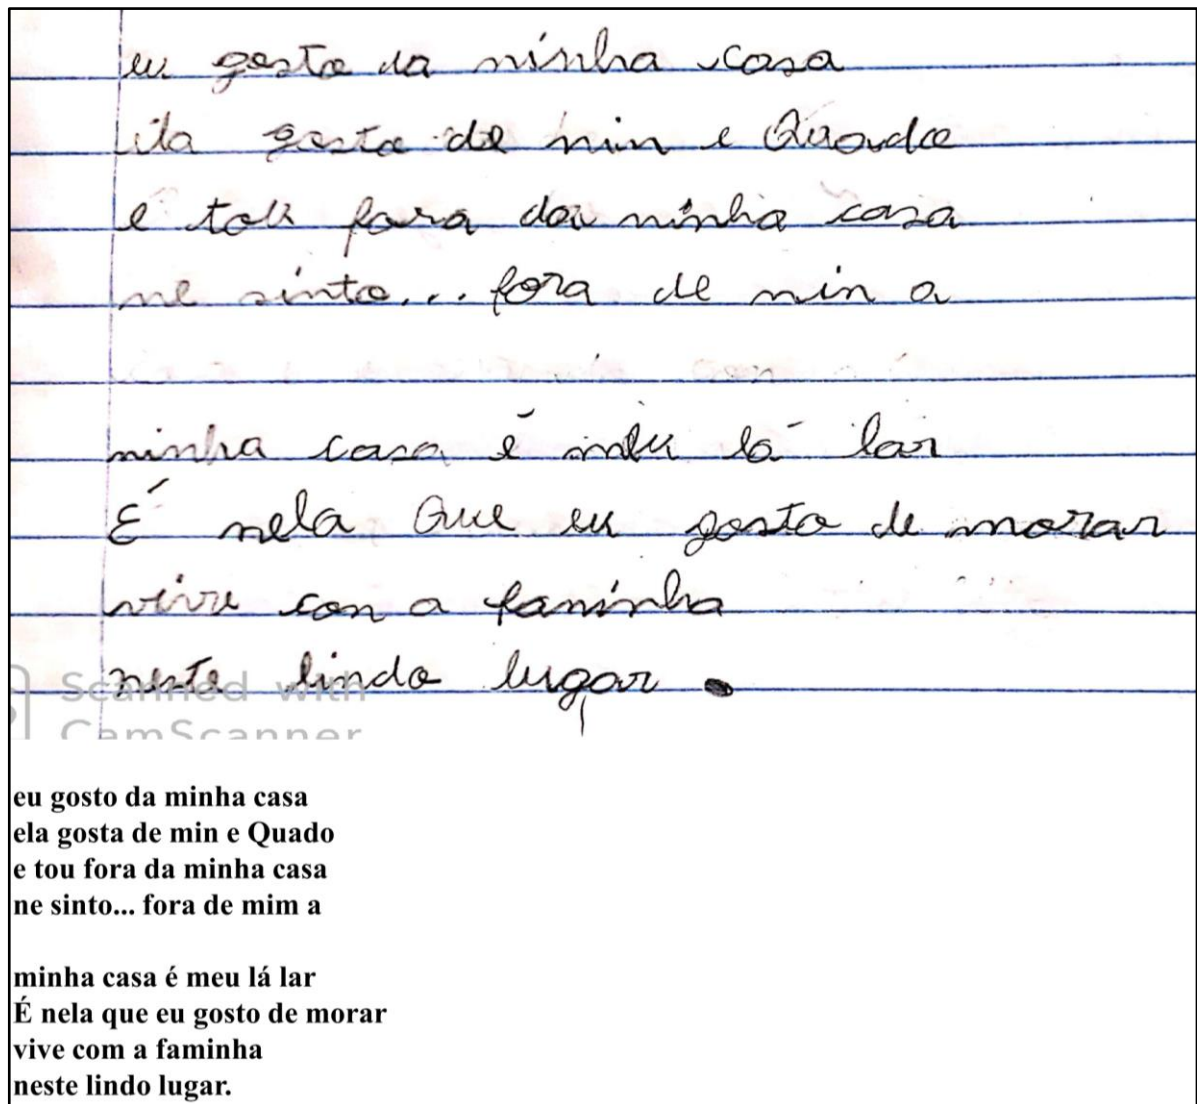 eu gosto da minha casa
ela gosta de min e Quado
e tou fora da ninha casa
ne sinto... fora de min a
ninha casa é meu lá lar
É nela Que eu gosto de morar
vive con a faminha
neste lindo lugar.
Scanned with
CamScanner
eu gosto da minha casa
ela gosta de min e Quado
e tou fora da minha casa
ne sinto... fora de mim a
minha casa é meu lá lar
É nela que eu gosto de morar
vive com a faminha
neste lindo lugar.